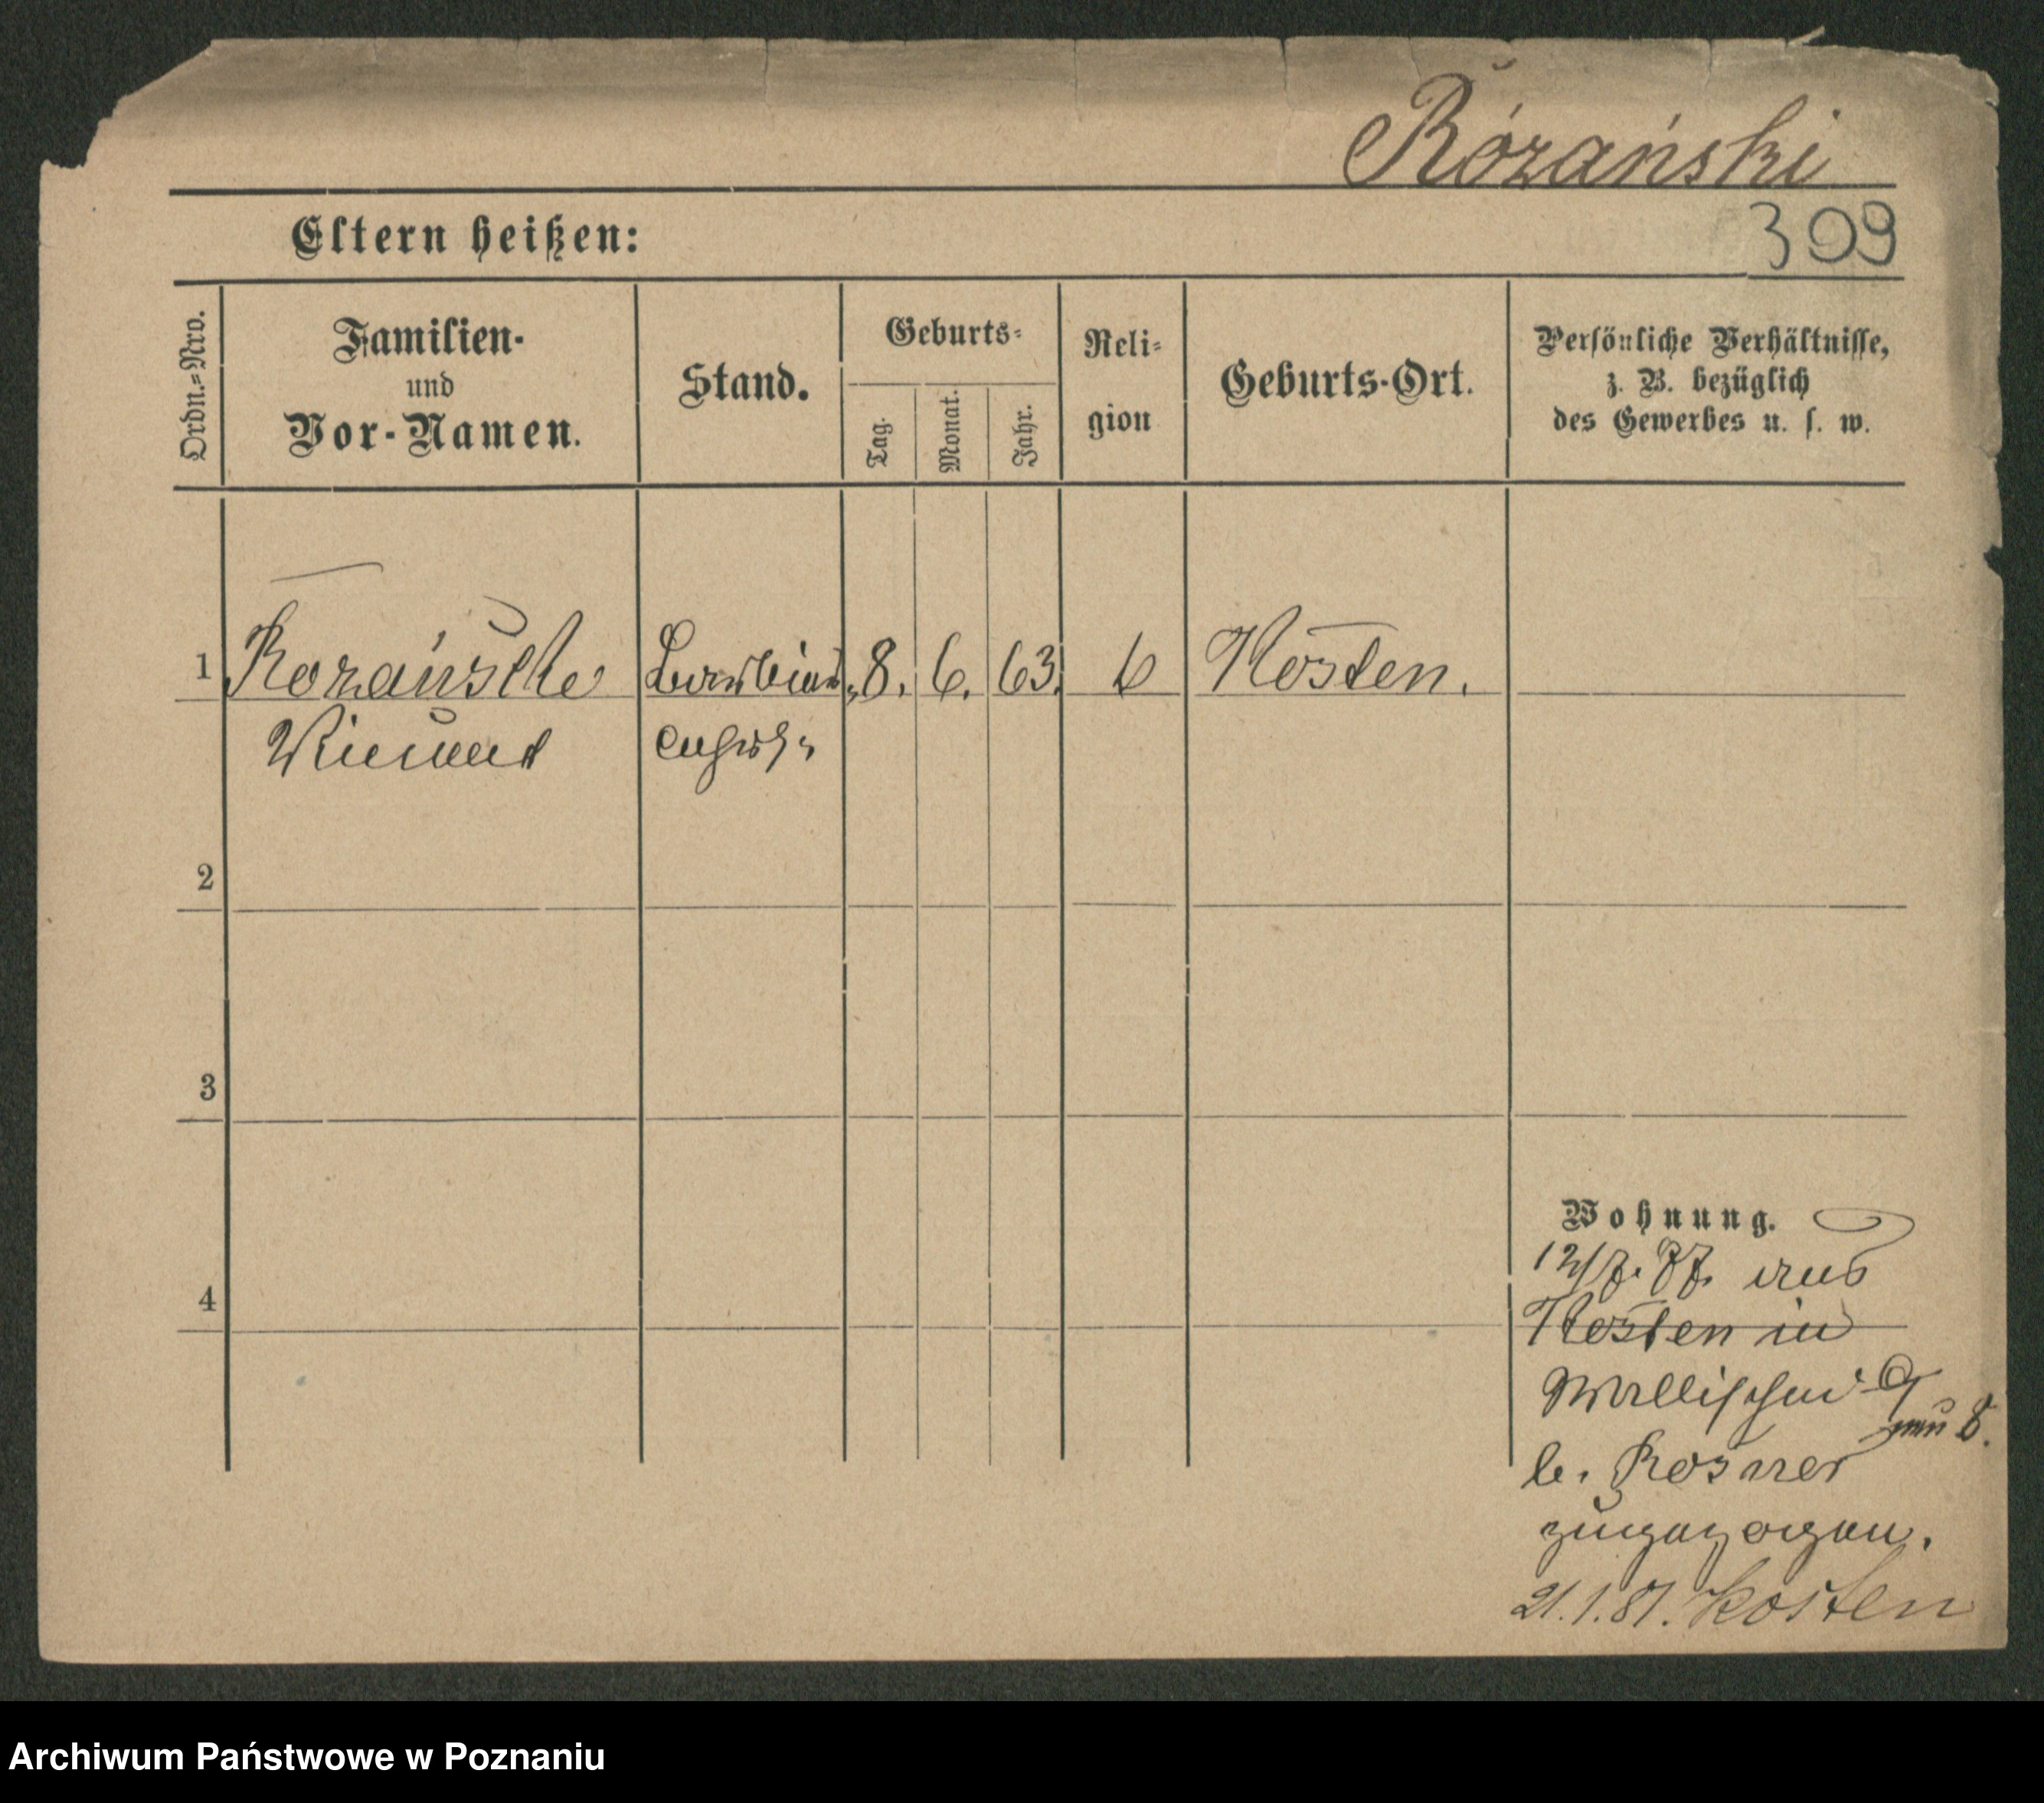 Różański
Eltern heißen:
309
Ordn.=Nro.
Familien-
und
Vor-Namen.
Stand.
Geburts=
Tag.
Monat.
Jahr.
Reli=
gion
Geburts-Ort.
Persönliche Verhältnisse,
z. B. bezüglich
des Gewerbes u. s. w.
1 8. 6. 63. Kosten.
2
3
4
Wohnung.
12/7. 77. aus
Kosten in
Wallischei
b.
zugezogen.
21.1.81. Kosten
Archiwum Państwowe w Poznaniu